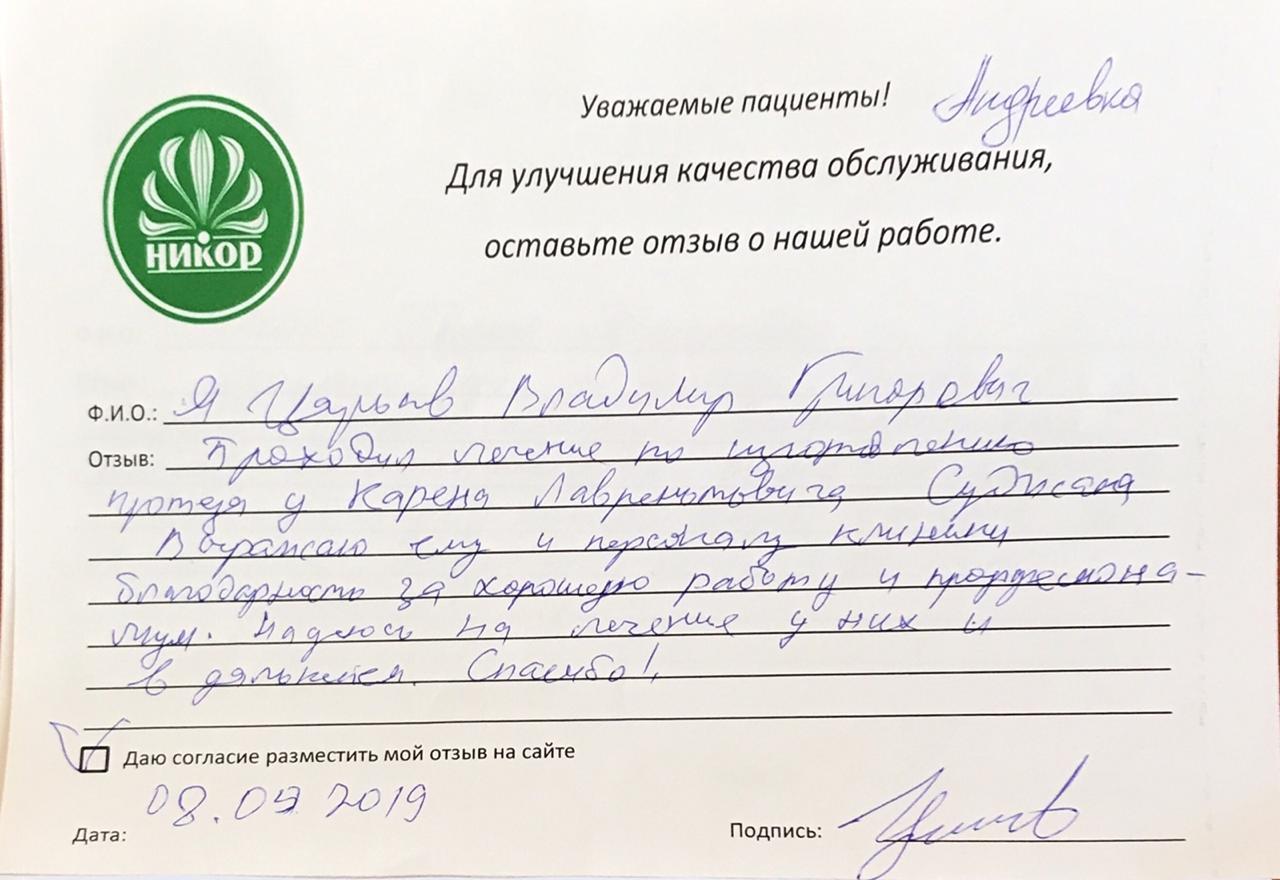 Уважаемые пациенты! Андреевка
Для улучшения качества обслуживания,
оставьте отзыв о нашей работе.
НИКОР
Ф.И.О.: Я Владимир Григорович
Отзыв: Проходил лечение по изготовлению
протеза у Карена Лаврентьевича
Выражаю ему и персоналу клиники
благодарность за хорошую работу и профессиона-
лизм. Надеюсь на лечение у них и
в дальнейшем. Спасибо!
Даю согласие разместить мой отзыв на сайте
Дата: 08.09 2019
Подпись: